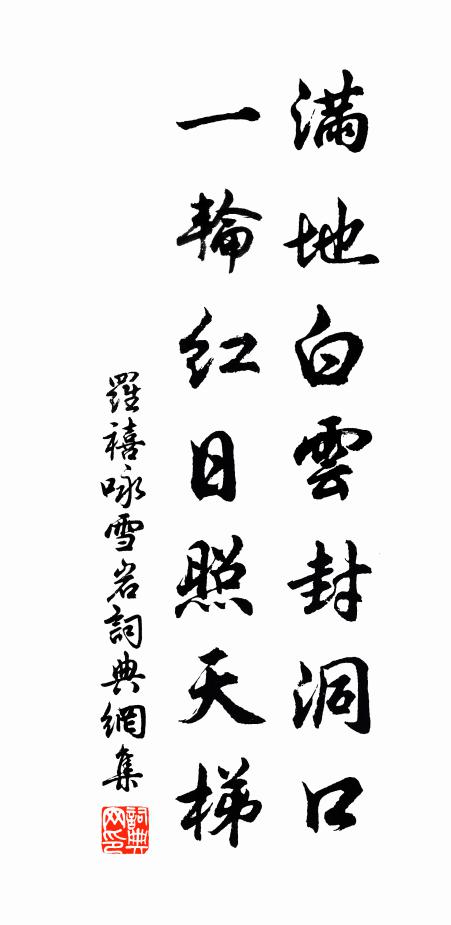 滿地白雲封洞口
一輪紅日照天梯
羅禧咏雪岩詞典網集
詞典网印